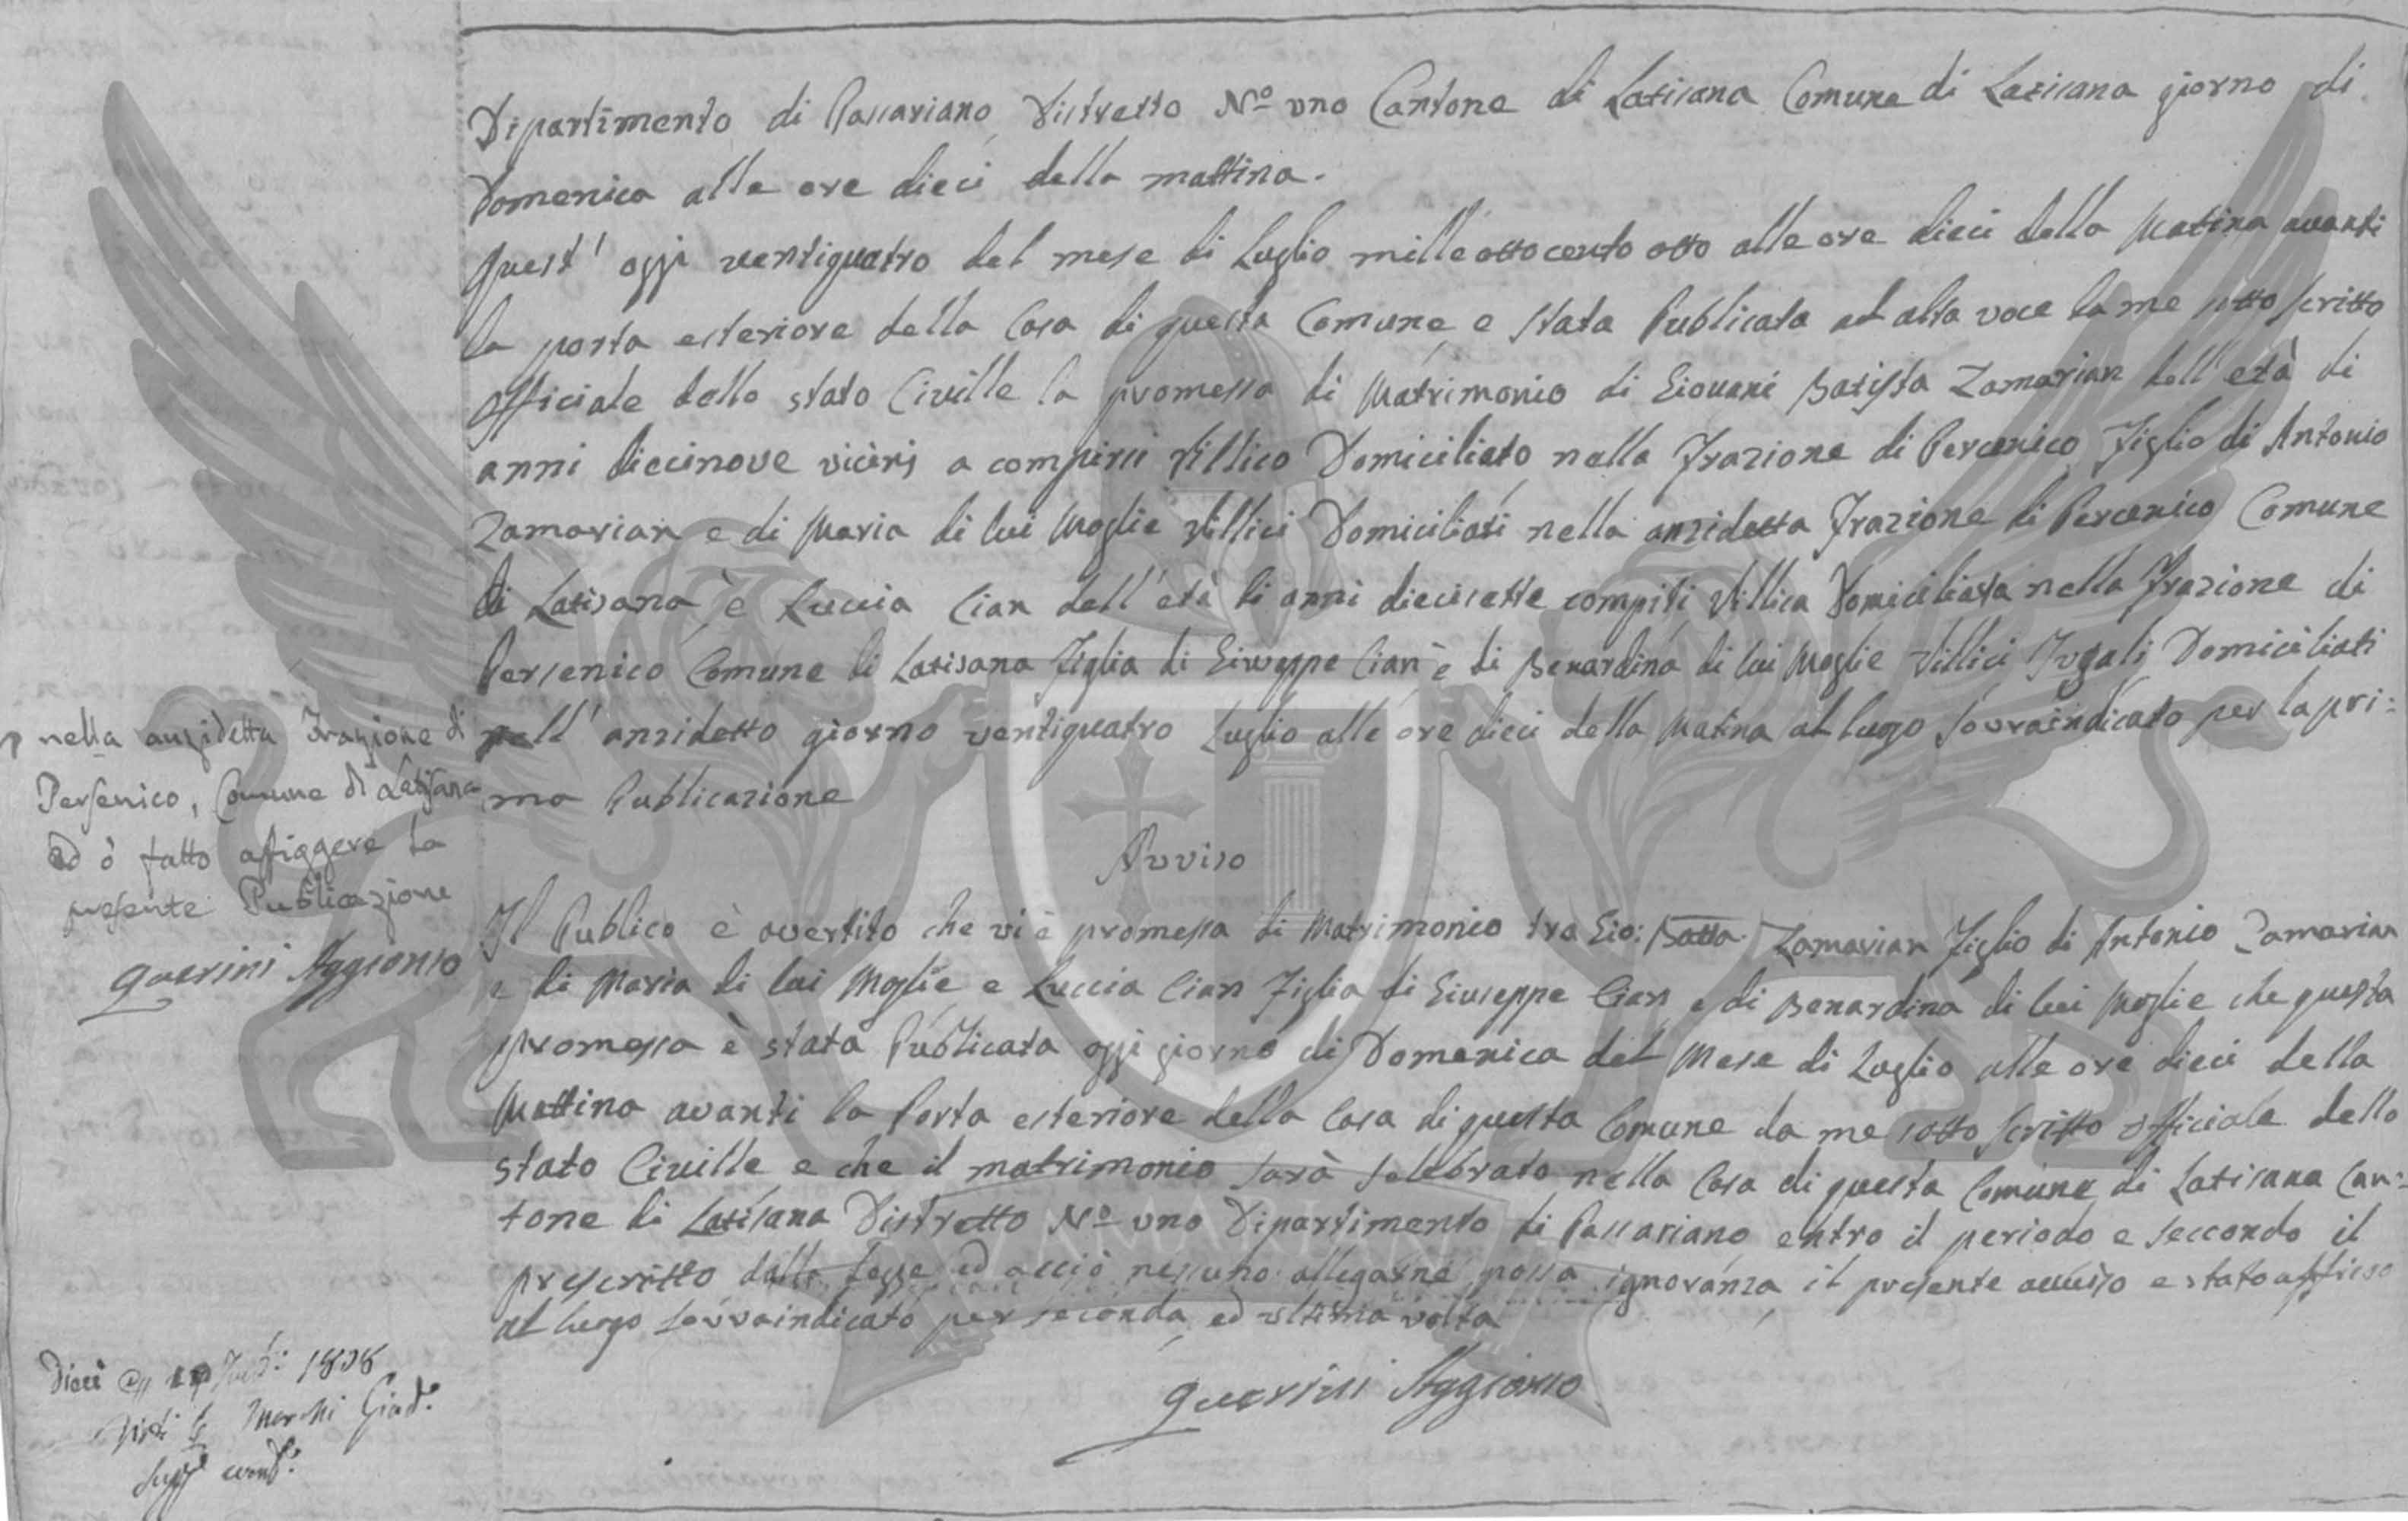 Dipartimento di Passariano Distretto Nº uno Cantone di Latisana Comune di Latisana giorno di
Domenica alle ore dieci della mattina.
Quest' oggi ventiquatro del mese di Luglio mille otto cento otto alle ore dieci della Matina avanti
la porta esteriore della Casa di questa Comune e stata Publicata ad alta voce da me sotto scritto
Officiale dello stato Civille la promessa di Matrimonio di Giovani Batista Zamarian dell'età di
anni diecinove a compirsi Villico Domiciliato nella Frazione di Percenico Figlio di Antonio
Zamarian e di Maria di lui Moglie Villici Domiciliati nella anzidetta Frazione di Percenico Comune
di Latisana è Luccia Cian dell'età di anni diecisette compiti Villica Domiciliata nella Frazione di
Persenico Comune di Latisana Figlia di Giuseppe Cian è di Benardina di lui Moglie Villici Jugali Domiciliati
nell' anzidetto giorno ventiquatro Luglio alle ore dieci della Matina al luogo sovraindicato per la pri:
ma Publicazione
nella anzidetta Frazione di
Persenico, Comune di Latisana
ed ò fatto affiggere la
presente Publicazione
Querini Aggionto
Avviso
Il Publico è avertito che vi è promessa di Matrimonio tra Gio: Batta Zamarian Figlio di Antonio Zamarian
e di Maria di lui Moglie e Luccia Cian Figlia di Giuseppe Cian e di Benardina di lui Moglie che questa
promessa è stata Publicata oggi giorno di Domenica del Mese di Luglio alle ore dieci della
Mattina avanti la Porta esteriore della Casa di questa Comune da me sotto scritto Officiale dello
stato Civille e che il matrimonio sarà selebrato nella Casa di questa Comune di Latisana Can:
tone di Latisana Distretto Nº uno Dipartimento di Passariano entro il periodo e seccondo il
prescritto dalla Legge ed acciò nessuno allegarne possa ignoranza il presente avviso e stato affisso
al luogo sovraindicato per seconda ed ultima volta
Querini Aggionto
1808
Marchi
ZAMARIAN